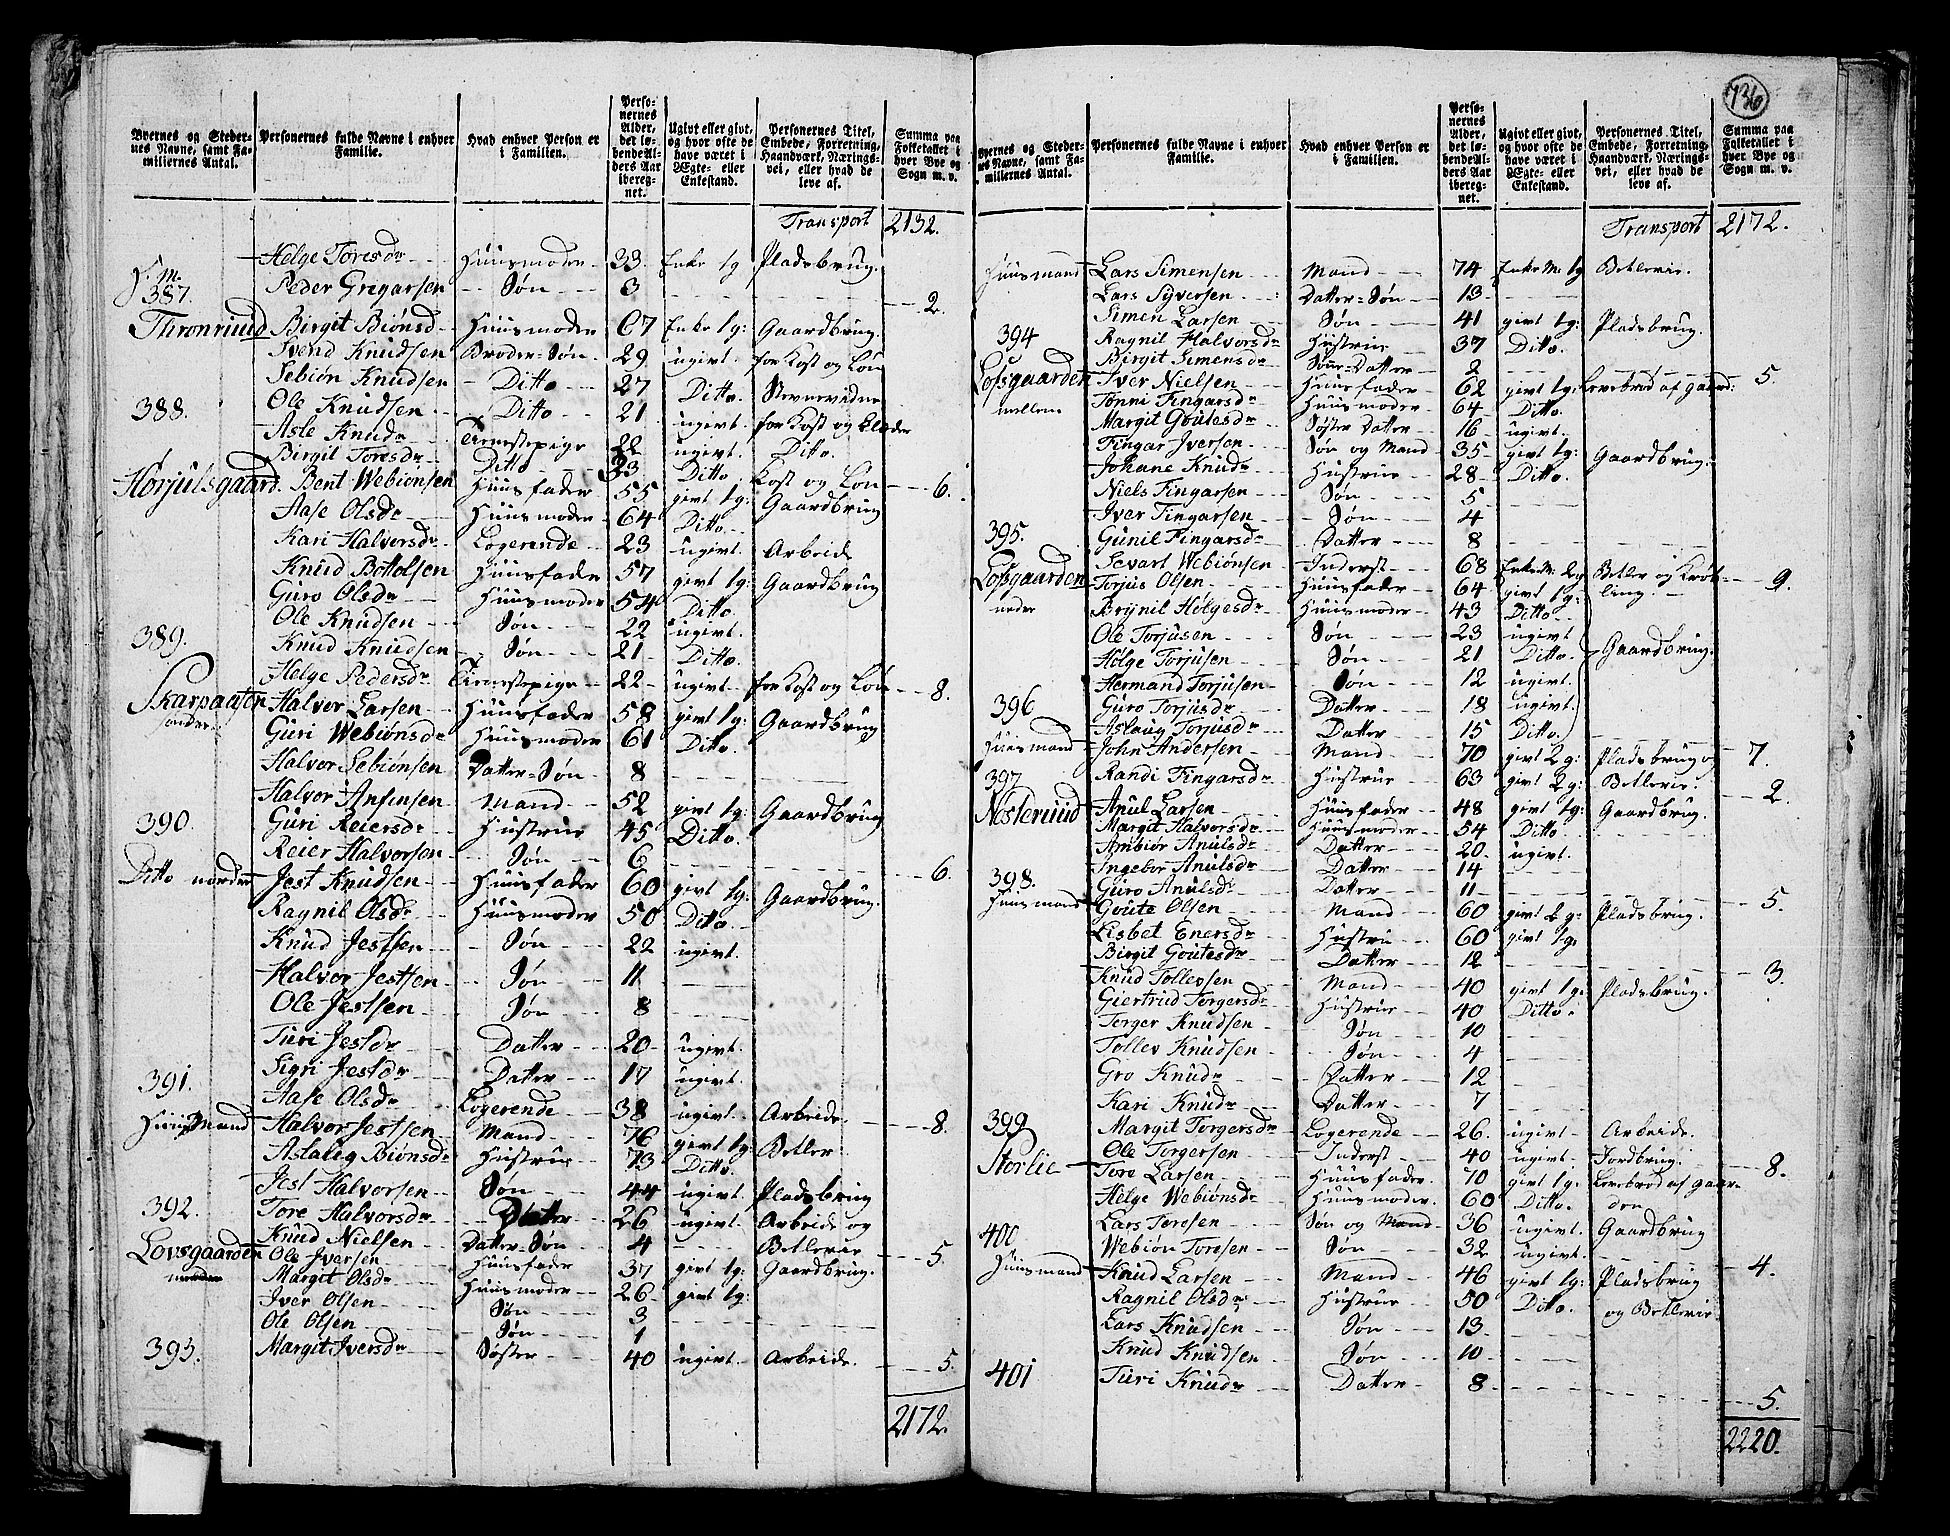 736
Byernes og Steder-
nes Navne, samt Fa-
miliernes Antal.
Personernes fulde Navne i enhver
Familie.
Hvad enhver Person er
i Familien.
Perso-
nernes
Alder,
det lø-
bende Al-
ders Aar
ibereg-
net.
Ugivt eller givt,
og hvor ofte de
have været i
Ægte- eller
Enkestand.
Personernes Titel,
Embede, Forretning,
Haandværk, Nærings-
vei, eller hvad de
leve af.
Summa paa
Folketallet i
hver Bye og
Sogn m. v.
Transport 2132.
Helge Toresdr Huusmoder 33 Enke 1g Pladsbrug.
H. m. 387. Peder Gregarsen Søn 3 2.
Thronruud Birgit Biønsd Huusmoder 67 Enke 1g: Gaardbrug
Svend Knudsen Broder-Søn 29 ugivt for Kost og Løn
Sebiøn Knudsen Ditto 27 Ditto
388. Ole Knudsen Ditto 21 ugivt for Kost og Klæder
Asle Knudr Tienestepige 22 ugivt Ditto
Birgit Toresdr Ditto 23 Ditto Kost og Løn 6.
Hørjulsgaard Bent Webiønsen Huusfader 55 givt 1g: Gaardbrug
Aase Olsdr Huusmoder 64 Ditto
Kari Halvorsdr Logerende 23 ugivt Arbeide
Knud Bottolsen Huusfader 57 givt 1g: Gaardbrug
Guro Olsdr Huusmoder 54 Ditto
Ole Knudsen Søn 22 ugivt.
389. Knud Knudsen Søn 21 Ditto.
Helge Pedersdr Tienestepige 22 ugivt for Kost og Løn 8.
Skarpaasen Halvor Larsen Huusfader 58 givt 1g: Gaardbrug
Guri Webiønsdr Huusmoder 61 Ditto.
Halvor Sebiønsen Datter-Søn 8
Halvor Ansensen Mand 52 givt 1g: Gaardbrug
390. Guri Reiersdr Hustrue 45 Ditto.
Reier Halvorsen Søn 6 6.
Ditto nordre Jest Knudsen Huusfader 60 givt 1g: Gaardbrug.
Ragnil Olsdr Huusmoder 50 Ditto.
Knud Jestsen Søn 22 ugivt.
Halvor Jestsen Søn 11
Ole Jestsen Søn 8
Turi Jestdr Datter 20 ugivt.
Sigri Jestdr Datter 17 ugivt.
391. Aase Olsdr Logerende 38 ugivt Arbeide. 8.
Huus Mand Halvor Jestsen Mand 76 givt 1g: Betler
Aslaug Biønsdr Hustrue 73 Ditto.
Jest Halvorsen Søn 44 ugivt Pladsbrug
392. Tore Halvorsdr Datter 26 ugivt Arbeide og
Knud Nielsen Datter-Søn 4 Betlerie 5.
Lovsgaarden Ole Iversen Huusfader 37 givt 1g: Gaardbrug.
Margit Olsdr Huusmoder 26 givt 1g:
Iver Olsen Søn 3
Ole Olsen Søn 1
393. Margit Iversdr Søster 40 ugivt Arbeide. 5.
2172.
Byernes og Steder-
nes Navne, samt Fa-
miliernes Antal.
Personernes fulde Navne i enhver
Familie.
Hvad enhver Person er
i Familien.
Perso-
nernes
Alder,
det lø-
bende Al-
ders Aar
ibereg-
net.
Ugivt eller givt,
og hvor ofte de
have været i
Ægte- eller
Enkestand.
Personernes Titel,
Embede, Forretning,
Haandværk, Nærings-
vei, eller hvad de
leve af.
Summa paa
Folketallet i
hver Bye og
Sogn m. v.
Transport 2172.
Huusmand Lars Simensen Mand 74 Enke M. 1g Betlerie.
Lars Syversen Datter-Søn 13
Simen Larsen Søn 41 givt 1g: Pladsbrug.
394 Ragnil Halvorsdr Hustrue 37 Ditto.
Birgit Simensdr Sønne-Datter 2 5.
Lofsgaarden Iver Nielsen Huusfader 62 givt 1g: Levebrød af gaard:
mellem Tønni Fingarsdr Huusmoder 64 Ditto.
Margit Goutesdr Søster Datter 16 ugivt.
Fingar Iversen Søn og Mand 35 givt 1g: Gaardbrug.
Johane Knudr Hustrue 28 Ditto.
Niels Fingarsen Søn 5
Iver Fingarsen Søn 4
395. Gunil Fingarsdr Datter 8
Sevart Webiønsen Inderst 68 Enke M. 2g Betler og Krøb- 9.
Lofsgaarden Torjus Olsen Huusfader 64 givt 1g: ling
nedre Brynil Holgesdr Huusmoder 43 Ditto
Ole Torjusen Søn 23 ugivt
Hølge Torjusen Søn 21 Ditto. Gaardbrug.
Hermand Torjusen Søn 12 ugivt.
396 Guro Torjusdr Datter 18 ugivt.
Aslaug Torjusdr Datter 15 Ditto. 7.
Huusmand John Andersen Mand 70 givt 2g: Pladsbrug og
397 Randi Fingarsdr Hustrue 63 givt 2g: Betlerie. 2.
Nesteruud Anul Larsen Huusfader 48 givt 1g: Gaardbrug.
Margit Halvorsdr Huusmoder 54 Ditto
Ambiør Anulsdr Datter 20 ugivt.
Ingebor Anulsdr Datter 14
398. Guro Anulsdr Datter 11 5.
Huusmand Goute Olsen Mand 60 givt 2g: Pladsbrug.
Lisbet Enersdr Hustru 60 givt 1g:
Birgit Goutesdr Datter 12 3.
Knud Tollevsen Mand 40 givt 1g: Pladsbrug.
Giertrud Torgersdr Hustrue 40 Ditto.
Torger Knudsen Søn 10
Tollev Knudsen Søn 4
Gro Knudr Datter 12
Kari Knudr Datter 7
399 Margit Torgersdr Logerende 26. ugivt Arbeide.
Ole Torgersen Inderst 40 ugivt Jordbrug. 8.
Storlie Tore Larsen Huusfader 70 givt 1g: Levebrød af Gaar-
Helge Webiønsdr Huusmoder 60 Ditto. den
Lars Toresen Søn og Mand 36 ugivt Gaardbrug
400 Webiøn Toresen Søn 32 ugivt. 4.
Huusmand Knud Larsen Mand 46 givt 1g: Pladsbrug
Ragnil Olsdr Hustrue 50 Ditto. og Betlerie
Lars Knudsen Søn 13
Knud Knudsen Søn 10
401 Turi Knudr Datter 8 5.
2220.